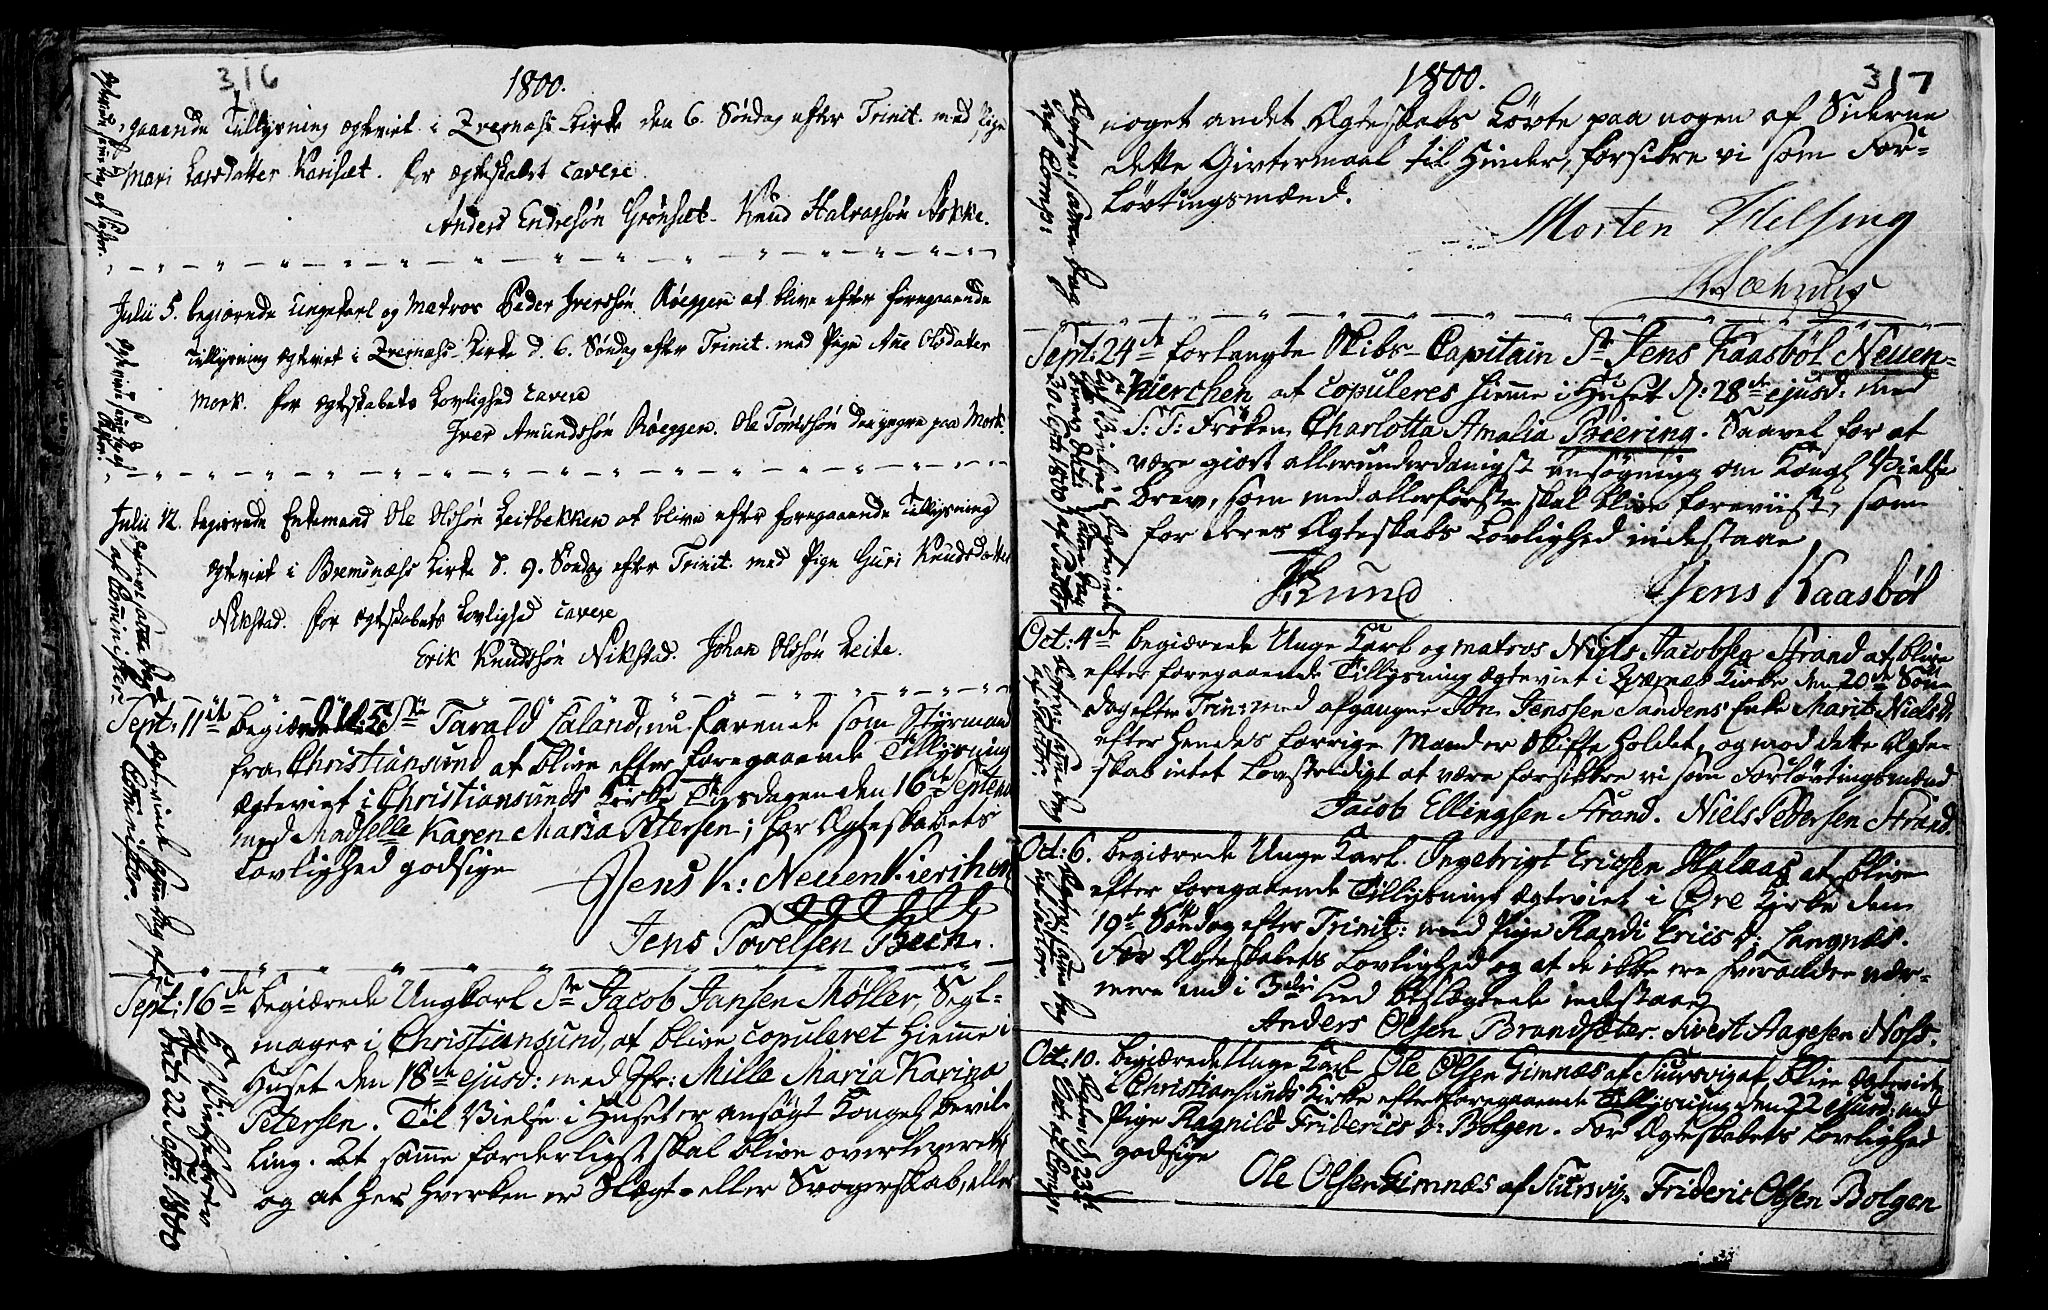 316
1800.
gaaende Tillysning ægteviet i Qvernæss Kirke den 6. Søndag efter Trinit. med Pige
Mari Larsdatter Karihæt. for ægteskabet cavere
Anders Endresøn Grønset. Knud Halvorsøn Aakke.
Julii 5. begiærede Ungekarl og Matros Peder Iversøn Røeggen at blive efter foregaaende
Tillysning ægteviet i Qvernæss Kirke d. 6. Søndag efter Trinit. med Pige Ane Olsdatter
Mork. for ægteskabets Lovlighed cavere
Iver Amundssøn Røeggen. Ole Torissøn den yngre paa Mork.
Julii 12. begiærede Enkemand Ole Olssøn Leitbekken at blive efter foregaaende Tillysning
ægteviet i Bremsnæss Kirke d. 9. Søndag efter Trinit. med Pige Guri Knudsdatter
Nikstad. for ægteskabets Lovlighed cavere
Erik Knudssøn Nikstad. Johan Olssøn Leite.
Sept: 11te begiærede Sr. Tarald Laland, nu farende som Styrmand
fra Christiansund at blive efter foregaaende Tillysning
ægteviet i Christiansunds Kirke Tiisdagen den 16de Septemb
med Madselle Karen Maria Petersen; for Ægteskabets
Lovlighed godsige
Jens K: Neuenkierchen
Jens Povelsen Bech.
Sept: 16de begiærede Ungkarl Sr. Jacob Jansen Møller, Segl-
mager i Christiansund, at blive copuleret hiemme i
Huset den 18de ejusd: med Jfr: Mille Maria Karina
Petersen. Til Vielse i Huset er ansøgt Kongel. bevil-
ling. At samme forderligst skal blive overleveret
og at her hverken er Slægt- eller Svogerskab, eller
1800.
317
noget andet Ægteskabs Løvte paa nogen af Siderne
dette Givtermaal til Hinder, forsikre vi som For-
løvtingsmænd.
Morten Helsing
Sept: 24de forlangte Skibs-Capitain Sr. Jens Kaasbøl Neuen-
kierchen at copuleres hiemme i Huset d: 28de ejusd: med
S: T: Frøken Charlotta Amalia Biering. Saavel for at
være giort allerunderdanigst ansøgning om Kongl. Vielse
brev, som med allerførste skal blive foreviist, som
for deres Ægteskabs Lovlighed indestaae
Jens Kaasbøl
Oct: 4de begiærede Unge Karl og matros Niels Jacobsen Strand at blive
efter foregaaende Tillysning ægteviet i Qværnes Kirke den 20de Søn-
dag efter Trin: med afgangne Jon Jenssen Sandens Enke Marit Niels D:
efter Hendes forrige Mand er Skifte holdet, og mod dette Ægte-
skab intet Lovstridigt at være forsikkre vi som Forløvtingsmænd
Jacob Ellingsen Strand. Niels Pedersen Strand.
Oct: 6. begiærede Unge Karl Ingebrigt Ericsen Skalaas at blive
efter foregaaende Tillysning ægteviet i Øre Kirke den
19de Søndag efter Trinit: med Pige Randi Erics D: Langnæs.
For Ægteskabets Lovlighed og at de ikke ere hverandre nær-
mere end i 3die Led beslægtede indestaae
Anders Olsen Brandsæter. Sivert Aagesen Noss.
Oct: 10. begiærede Unge Karl Ole Olsen Gimnæs af Suursvig at blive ægteviet
i Christiansunds Kirke efter foregaaende Tillysning den 22 ejusd: med
Pige Ragnild Friderics D: Bolgen. For Ægteskabets Lovlighed
godsige
Ole Olsen Gimnæs af Suursvig. Frideric Olsen Bolgen